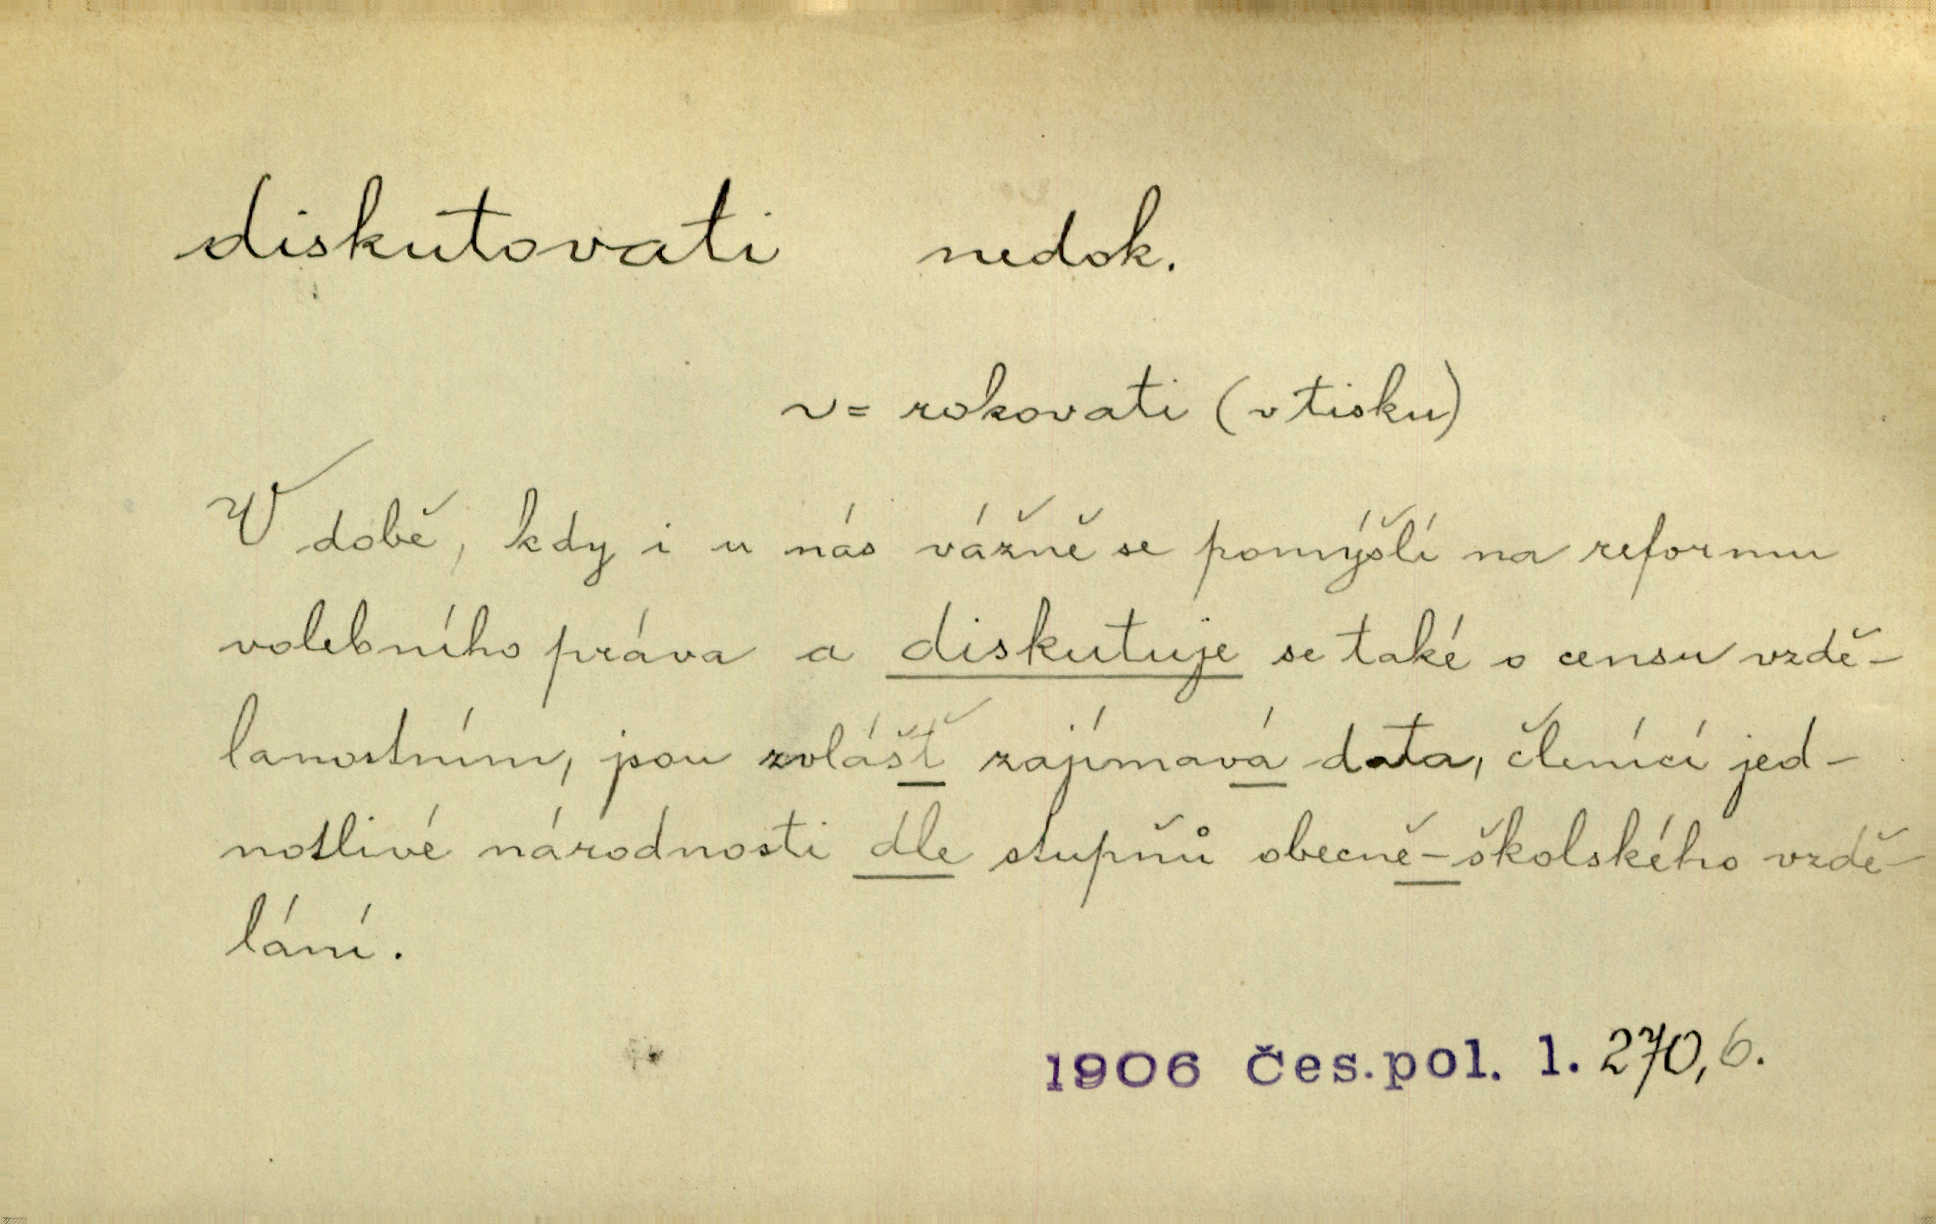 diskutovati nedok.
v = rokovati (v tisku)
V době, kdy i u nás vážně se pomýšlí na reformu
volebního práva a diskutuje se také o censu vzdě-
lanostním, jsou zvlášť zajímavá data, členící jed-
notlivé národnosti dle stupňů obecně-školského vzdě-
lání.
1906 Čes.pol. l. 270, 6.